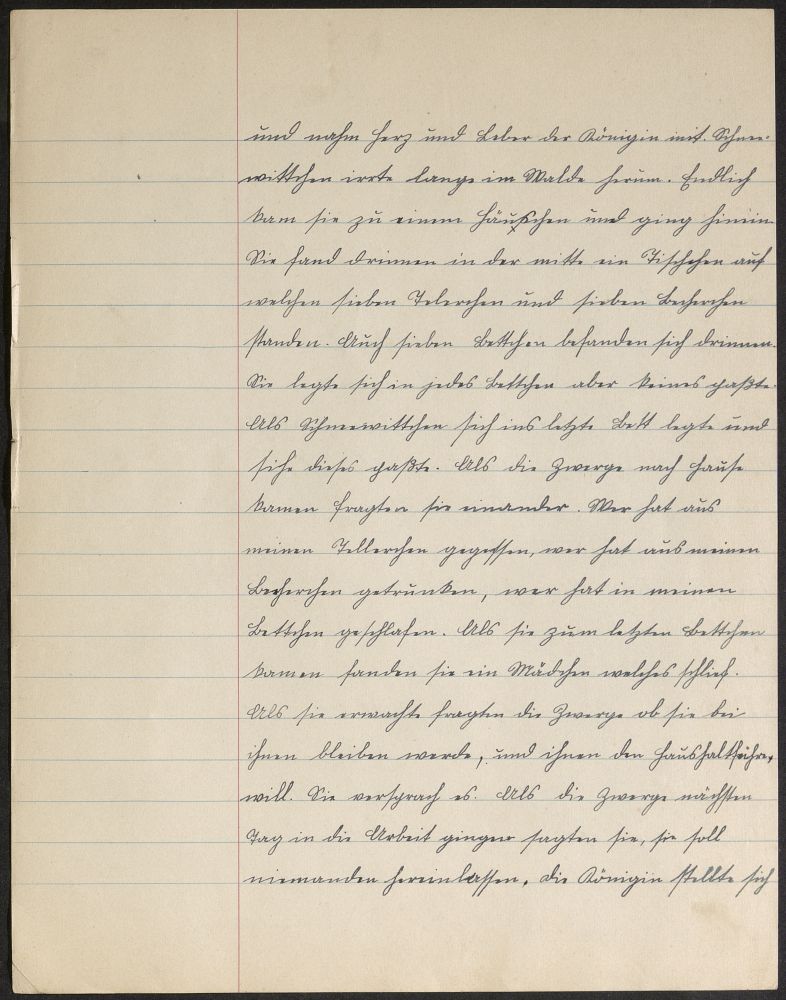 und nahm Herz und Leber der Königin mit. Schnee-
wittchen irrte lange im Walde herum. Endlich
kam sie zu einem Häuschen und ging hinein
Sie fand drinnen in der mitte ein Tischchen auf
welchen sieben Telerchen und sieben Becherchen
standen. Auch sieben Bettchen befanden sich drinnen.
Sie legte sich in jedes Bettchen aber keines paßte.
Als Schneewittchen sich ins letzte Bett legte und
sihe dieses paßte. Als die Zwerge nach Hause
kamen fragten sie einander. Wer hat aus
meinen Tellerchen gegessen, wer hat aus meinen
Becherchen getrunken, wer hat in meinen
Bettchen geschlafen. Als sie zum letzten Bettchen
kamen fanden sie ein Mädchen welches schlief.
Als sie erwachte fragten die Zwerge ob sie bei
ihnen bleiben werde, und ihnen den Haushalt führen
will. Sie versprach es. Als die Zwerge nächsten
Tag in die Arbeit gingen sagten sie, sie soll
niemanden hereinlassen. Die Königin stellte sich